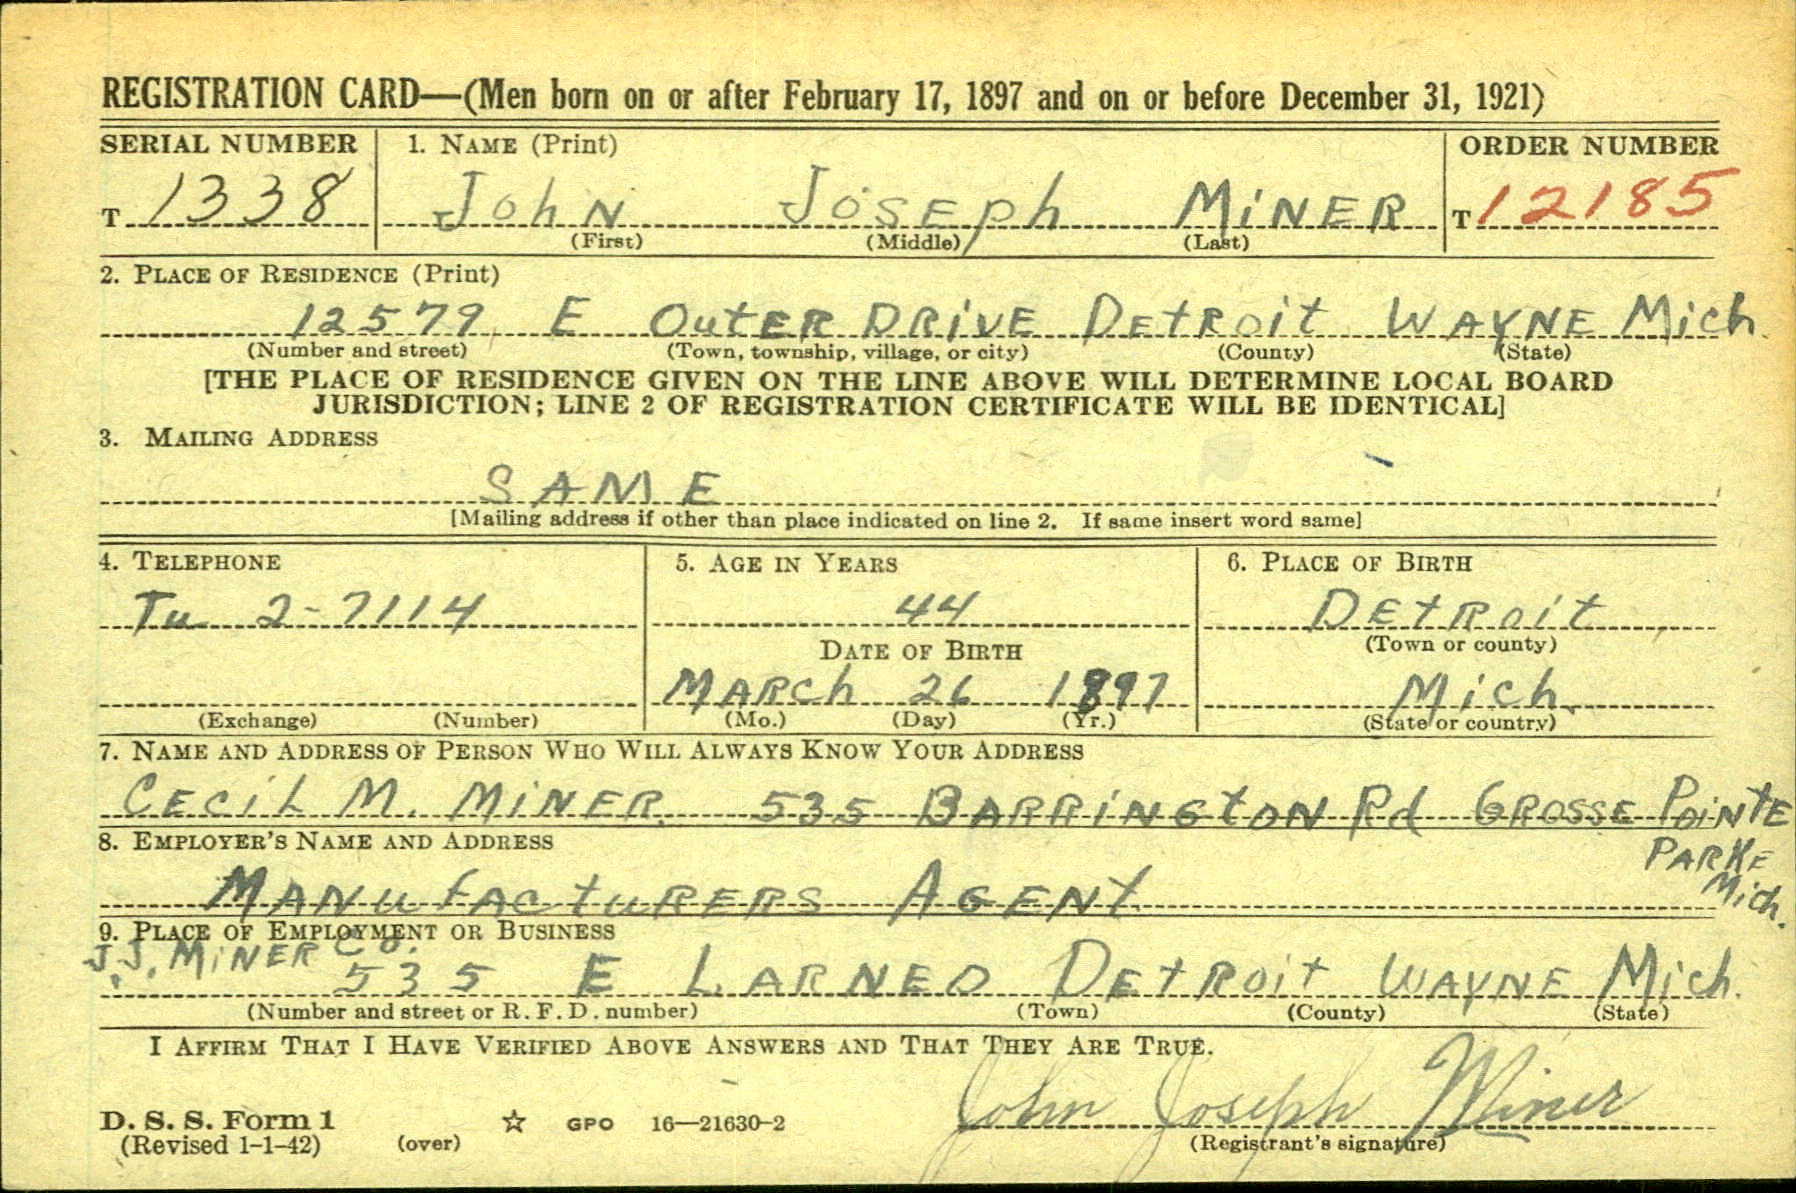 REGISTRATION CARD—(Men born on or after February 17, 1897 and on or before December 31, 1921)
SERIAL NUMBER 1. NAME (Print) ORDER NUMBER
T 1338 John Joseph Miner T 12185
(First) (Middle) (Last)
2. PLACE OF RESIDENCE (Print)
12579 E Outer Drive Detroit Wayne Mich
(Number and street) (Town, township, village, or city) (County) (State)
[THE PLACE OF RESIDENCE GIVEN ON THE LINE ABOVE WILL DETERMINE LOCAL BOARD
JURISDICTION; LINE 2 OF REGISTRATION CERTIFICATE WILL BE IDENTICAL]
3. MAILING ADDRESS
SAME
[Mailing address if other than place indicated on line 2. If same insert word same]
4. TELEPHONE 5. AGE IN YEARS 6. PLACE OF BIRTH
Tu 2-7114 44 Detroit
DATE OF BIRTH (Town or county)
March 26 1897 Mich.
(Exchange) (Number) (Mo.) (Day) (Yr.) (State or country)
7. NAME AND ADDRESS OF PERSON WHO WILL ALWAYS KNOW YOUR ADDRESS
Cecil M. Miner 535 Barrington Rd Grosse Pointe
Parke
Mich.
8. EMPLOYER'S NAME AND ADDRESS
Manufacturers Agent
9. PLACE OF EMPLOYMENT OR BUSINESS
J.J. Miner Co.
535 E Larned Detroit Wayne Mich.
(Number and street or R. F. D. number) (Town) (County) (State)
I AFFIRM THAT I HAVE VERIFIED ABOVE ANSWERS AND THAT THEY ARE TRUE.
John Joseph Miner
D. S. S. Form 1 GPO 16—21630-2
(Revised 1-1-42) (over) (Registrant's signature)